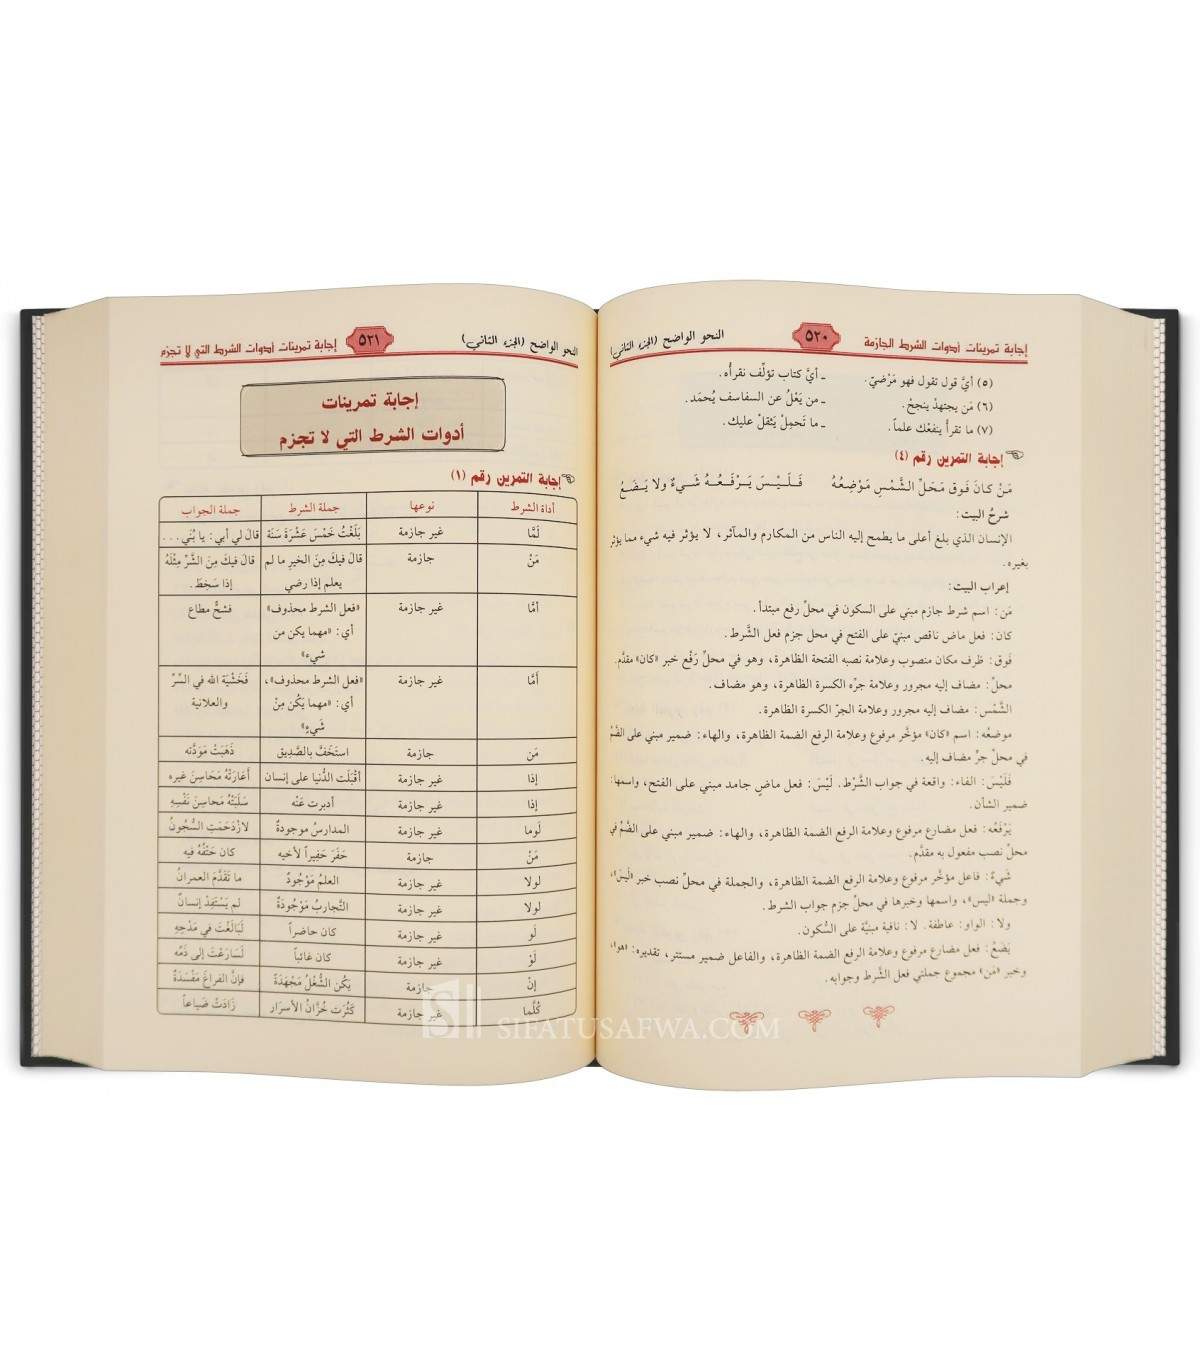 إجابة تمرينات أدوات الشرط الجازمة ٥٢٠ النحو الواضح (الجزء الثاني)
(٥) أيَّ قول تقول فهو مَرْضيّ. ـ أيَّ كتاب تؤلّف نقرأه.
(٦) مَن يجتهدْ ينجحْ. ـ من يَعْلُ عن السفاسف يُحمَد.
(٧) ما تقرأْ ينفعْك علماً. ـ ما تَحمِلْ يَثقلْ عليك.
إجابة التمرين رقم (٤)
مَنْ كانَ فَوق مَحَلِّ الشَّمْسِ مَوْضِعُهُ فَلَيْسَ يَرْفَعُهُ شَيءٌ ولا يَضَعُ
شرحُ البيت:
الإنسان الذي بلغ أعلى ما يطمح إليه الناس من المكارم والمآثر، لا يؤثر فيه شيء مما يؤثر
بغيره.
إعراب البيت:
مَن: اسم شرط جازم مبني على السكون في محلّ رفع مبتدأ.
كان: فعل ماض ناقص مبنيّ على الفتح في محل جزم فعل الشَّرط.
فَوق: ظرف مكان منصوب وعلامة نصبه الفتحة الظاهرة، وهو في محلِّ رَفْع خبر «كان» مقدَّم.
محلِّ: مضاف إليه مجرور وعلامة جرِّه الكسرة الظاهرة، وهو مضاف.
الشَّمْس: مضاف إليه مجرور وعلامة الجرّ الكسرة الظاهرة.
موضعُه: اسم «كان» مؤخَّر مرفوع وعلامة الرفع الضمة الظاهرة، والهاء: ضمير مبني على الضمِّ
في محلّ جرِّ مضاف إليه.
فَلَيْسَ: الفاء: واقعة في جواب الشَّرْط. لَيْسَ: فعل ماضٍ جامد مبني على الفتح، واسمها:
ضمير الشأن.
يَرْفَعُه: فعل مضارع مرفوع وعلامة الرفع الضمة الظاهرة، والهاء: ضمير مبني على الضَّمِّ في
محلّ نصب مفعول به مقدَّم.
شَيءٌ: فاعل مؤخَّر مرفوع وعلامة الرفع الضمة الظاهرة، والجملة في محلِّ نصب خبر «لَيسَ»،
وجملة «ليس»، واسمها وخبرها في محلّ جزم جواب الشرط.
ولا: الواو: عاطفة. لا: نافية مبنيَّة على السُّكون.
يَضَعُ: فعل مضارع مرفوع وعلامة الرفع الضمة الظاهرة، والفاعل ضمير مستتر، تقديره: «هو»،
وخبر «مَن» مجموع جملتي فعل الشَّرط وجوابه.
النحو الواضح (الجزء الثاني) ٥٢١ إجابة تمرينات أدوات الشرط التي لا تجزم
إجابة تمرينات
أدوات الشرط التي لا تجزم
إجابة التمرين رقم (١)
أداة الشرط نوعها جملة الشرط جملة الجواب
لَمَّا غير جازمة بَلَغْتُ خَمْسَ عَشْرَةَ سَنَةً قالَ لي أبي: يا بُنَي...
مَنْ جازمة قالَ فيكَ مِنَ الخيرِ ما لم قالَ فيكَ مِنَ الشَّرِّ مِثْلَهُ
يعلم إذا رضي إذا سَخِطَ.
أمَّا غير جازمة «فعل الشرط محذوف» فشحٌّ مطاع
أي: «مهما يكن من
شيء»
أَمَّا غير جازمة «فعل الشرط محذوف»، فَخَشْيَة الله في السِّرِّ
أي: «مهما يَكُن مِنْ والعلانية
شَيءٍ»
مَن جازمة استَخَفَّ بالصَّدِيق ذَهَبَتْ مَوَدَّته
إذا غير جازمة أقْبَلَت الدُّنيا على إنسان أعَارَتْهُ مَحَاسِنَ غيره
إذا غير جازمة أدبرت عَنْه سَلَبَتْهُ مَحاسِنَ نَفْسِهِ
لَوما غير جازمة المدارسُ موجودةٌ لازْدَحَمَتِ السُّجُونُ
مَنْ جازمة حَفَرَ حَفِيراً لأخيه كان حَتْفُهُ فيه
لولا غير جازمة العلمُ مَوْجُودٌ ما تَقَدَّمَ العمرانُ
لولا غير جازمة التَّجاربُ مَوْجُودَةٌ لم يَسْتَفِدْ إنسانٌ
لَو غير جازمة كان حاضراً لَبَالَغْتَ في مَدْحِهِ
لَوْ غير جازمة كان غائباً لَسَارَعْتَ إلى ذَمِّه
إنْ جازمة يَكُن الشُّغْلُ مَجْهَدَةً فإنَّ الفراغَ مَفْسَدَةٌ
كُلَّما غير جازمة كَثُرَت خُزَّانُ الأسرَار زَادَتْ ضَيَاعاً
SIFATUSAFWA.COM